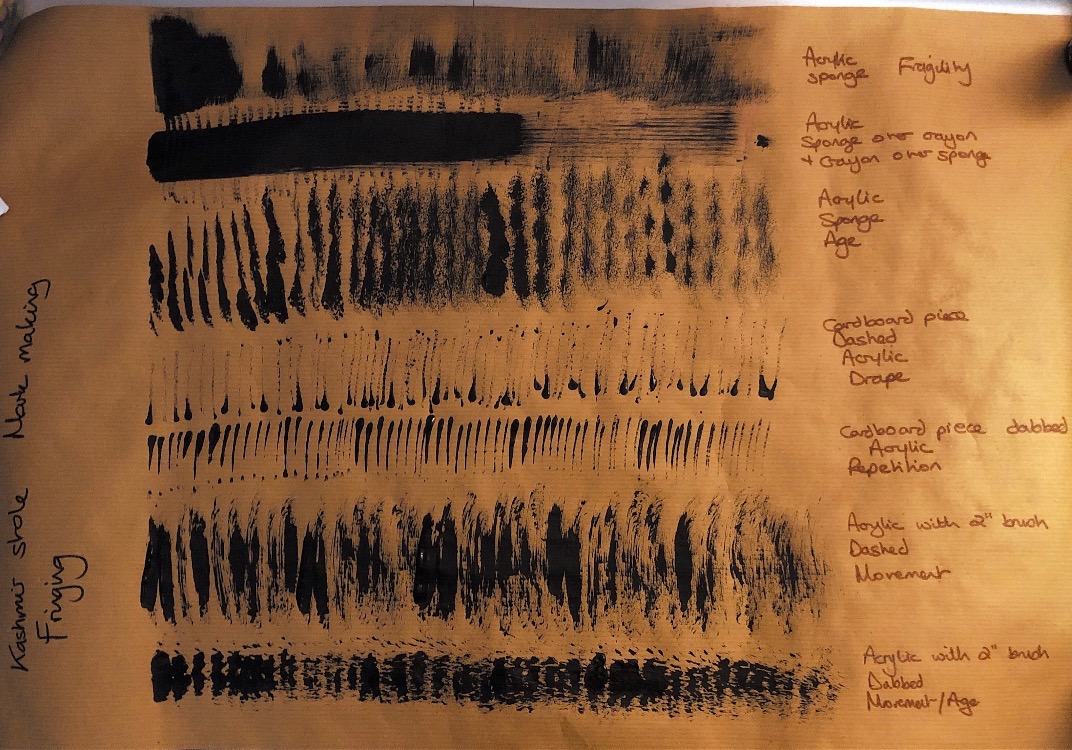 Kashmir shole Mark making
Fringing
Acrylic
sponge Fragility
Acrylic
Sponge over crayon
+ Crayon over sponge
Acrylic
Sponge
Age
Cardboard piece
Dashed
Acrylic
Drape
Cardboard piece dabbed
Acrylic
Repetition
Acrylic with 2" brush
Dashed
Movement
Acrylic with 2" brush
Dabbed
Movement/Age